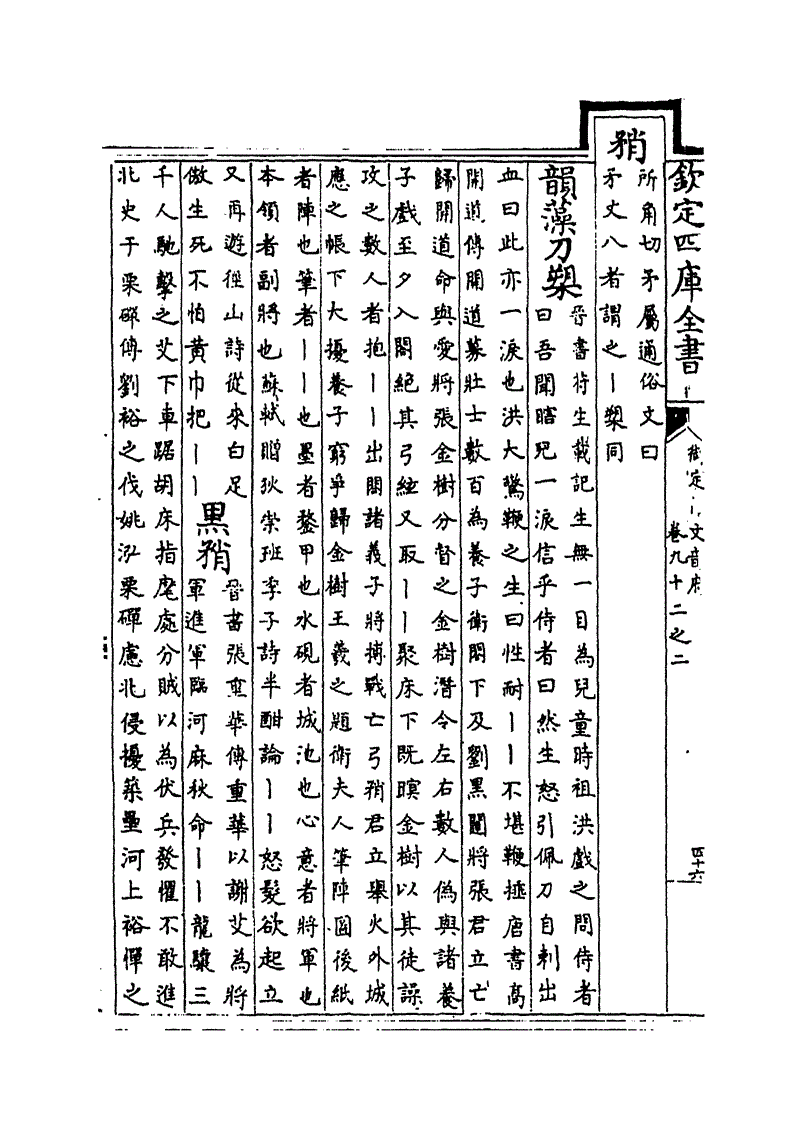 欽定四庫全書
御定佩文韻府
卷九十二之二
四十六
矟
所角切矛屬通俗文曰
矛丈八者謂之丨槊同
韻藻刀槊
晉書苻生載記生無一目為兒童時祖洪戲之問侍者
曰吾聞瞎兒一淚信乎侍者曰然生怒引佩刀自刺出
血曰此亦一淚也洪大驚鞭之生曰性耐丨丨不堪鞭捶唐書高
開道傳開道募壯士數百為養子衛閤下及劉黑闥將張君立亡
歸開道命與愛將張金樹分督之金樹潛令左右數人偽與諸養
子戲至夕入閤絕其弓絃又取丨丨聚床下既暝金樹以其徒譟
攻之數人者抱丨丨出閤諸義子將搏戰亡弓矟君立舉火外城
應之帳下大擾養子窮爭歸金樹王羲之題衛夫人筆陣圖後紙
者陣也筆者丨丨也墨者鍪甲也水硯者城池也心意者將軍也
本領者副將也蘇軾贈狄崇班季子詩半酣論丨丨怒髮欲起立
又再遊徑山詩從來白足
傲生死不怕黃巾把丨丨
黑矟
晉書張重華傳重華以謝艾為將
軍進軍臨河麻秋命丨丨龍驤三
千人馳擊之艾下車踞胡床指麾處分賊以為伏兵發懼不敢進
北史于栗磾傳劉裕之伐姚泓栗磾慮北侵擾築壘河上裕憚之